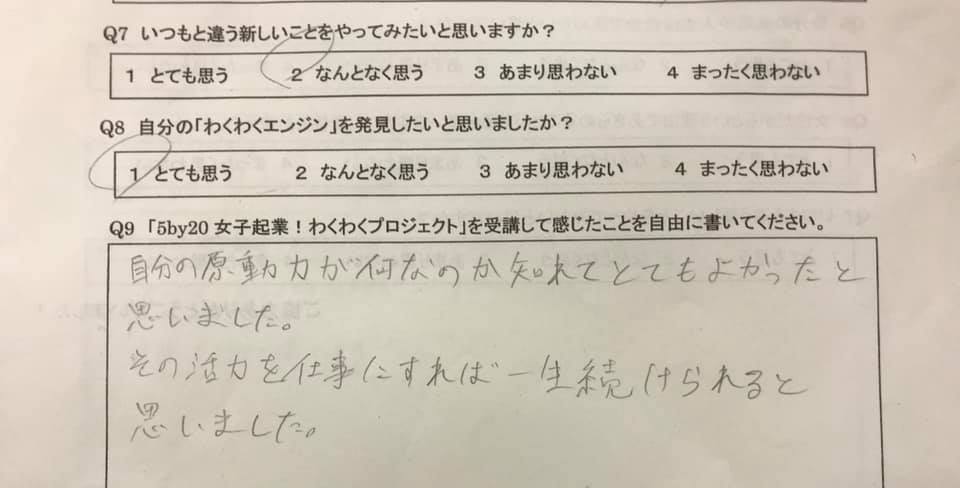 Q7 いつもと違う新しいことをやってみたいと思いますか？
1 とても思う 2 なんとなく思う 3 あまり思わない 4 まったく思わない
Q8 自分の「わくわくエンジン」を発見したいと思いましたか？
1 とても思う 2 なんとなく思う 3 あまり思わない 4 まったく思わない
Q9 「5by20 女子起業！わくわくプロジェクト」を受講して感じたことを自由に書いてください。
自分の原動力が何なのか知れてとてもよかったと
思いました。
その活力を仕事にすれば一生続けられると
思いました。